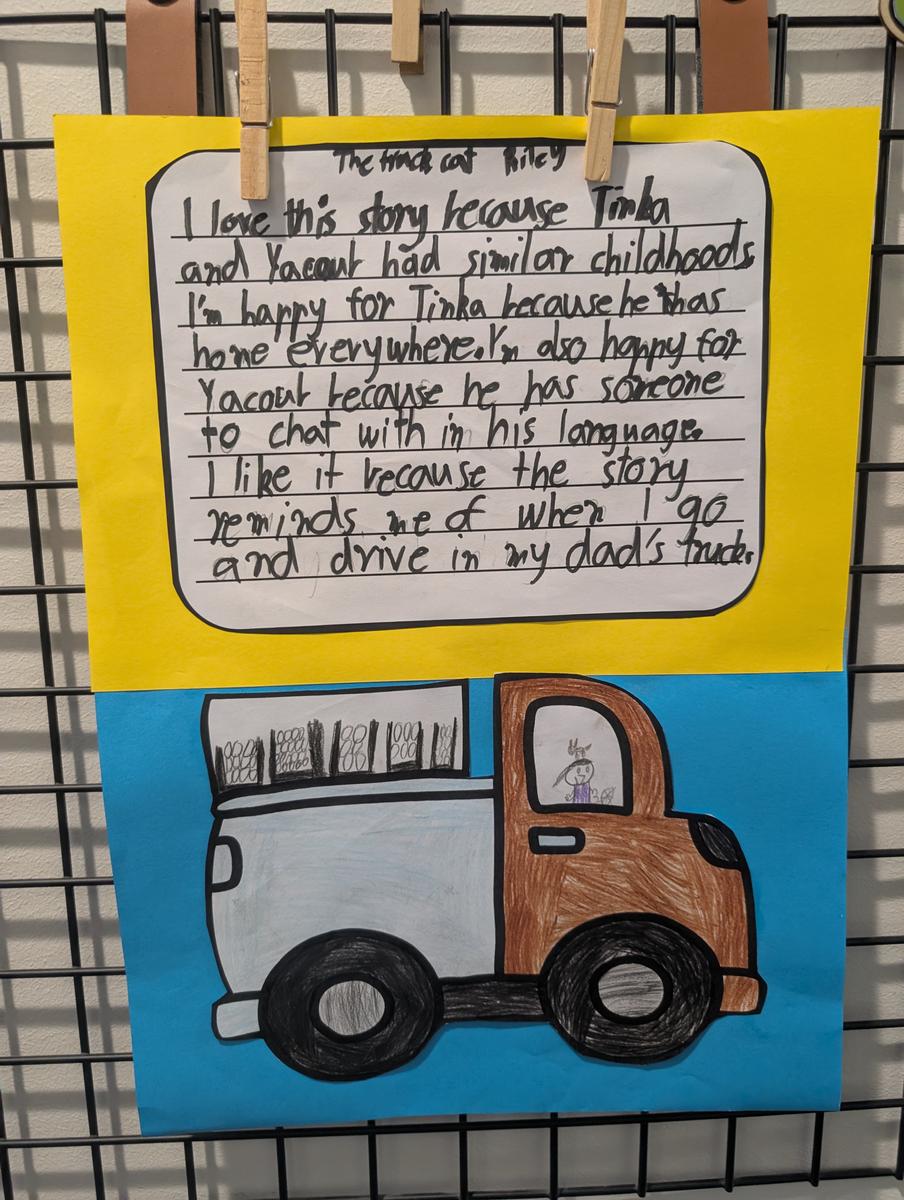 The truck cat Riley
I love this story because Tinka
and Yacout had similar childhoods.
I'm happy for Tinka because he has
home everywhere. I'm also happy for
Yacout because he has someone
to chat with in his language.
I like it because the story
reminds me of when I go
and drive in my dad's truck.